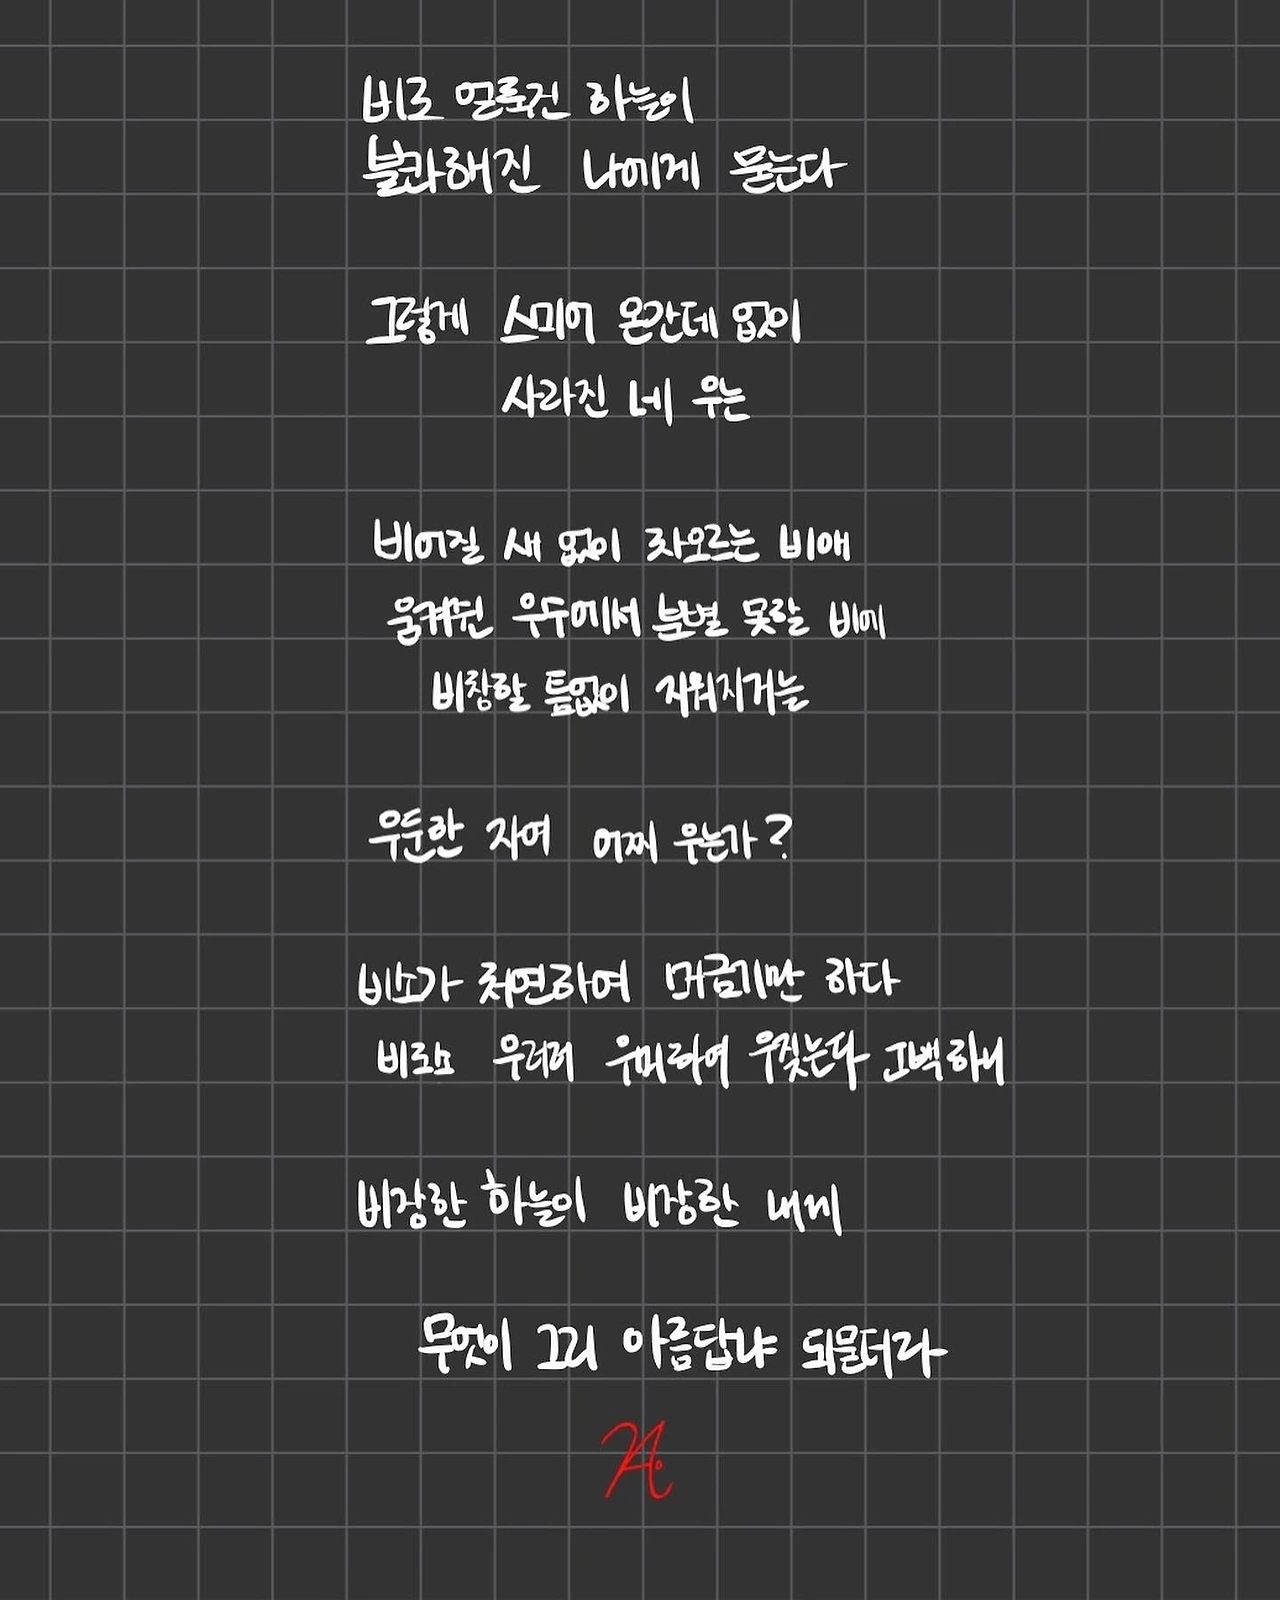 비로 얼룩진 하늘이
불콰해진 나에게 묻는다
그렇게 스미어 온간데 없이
사라진 네 우는
비어질 새 없이 차오르는 비애
움켜쥔 우주에서 분별 못할 비에
비창할 틈없이 지워지거늘
우둔한 자여 어찌 우는가?
비소가 처연하여 머금기만 하다
비로소 우러러 우매하여 우짖는다 고백하니
비장한 하늘이 비장한 내게
무엇이 그리 아름답냐 되물더라